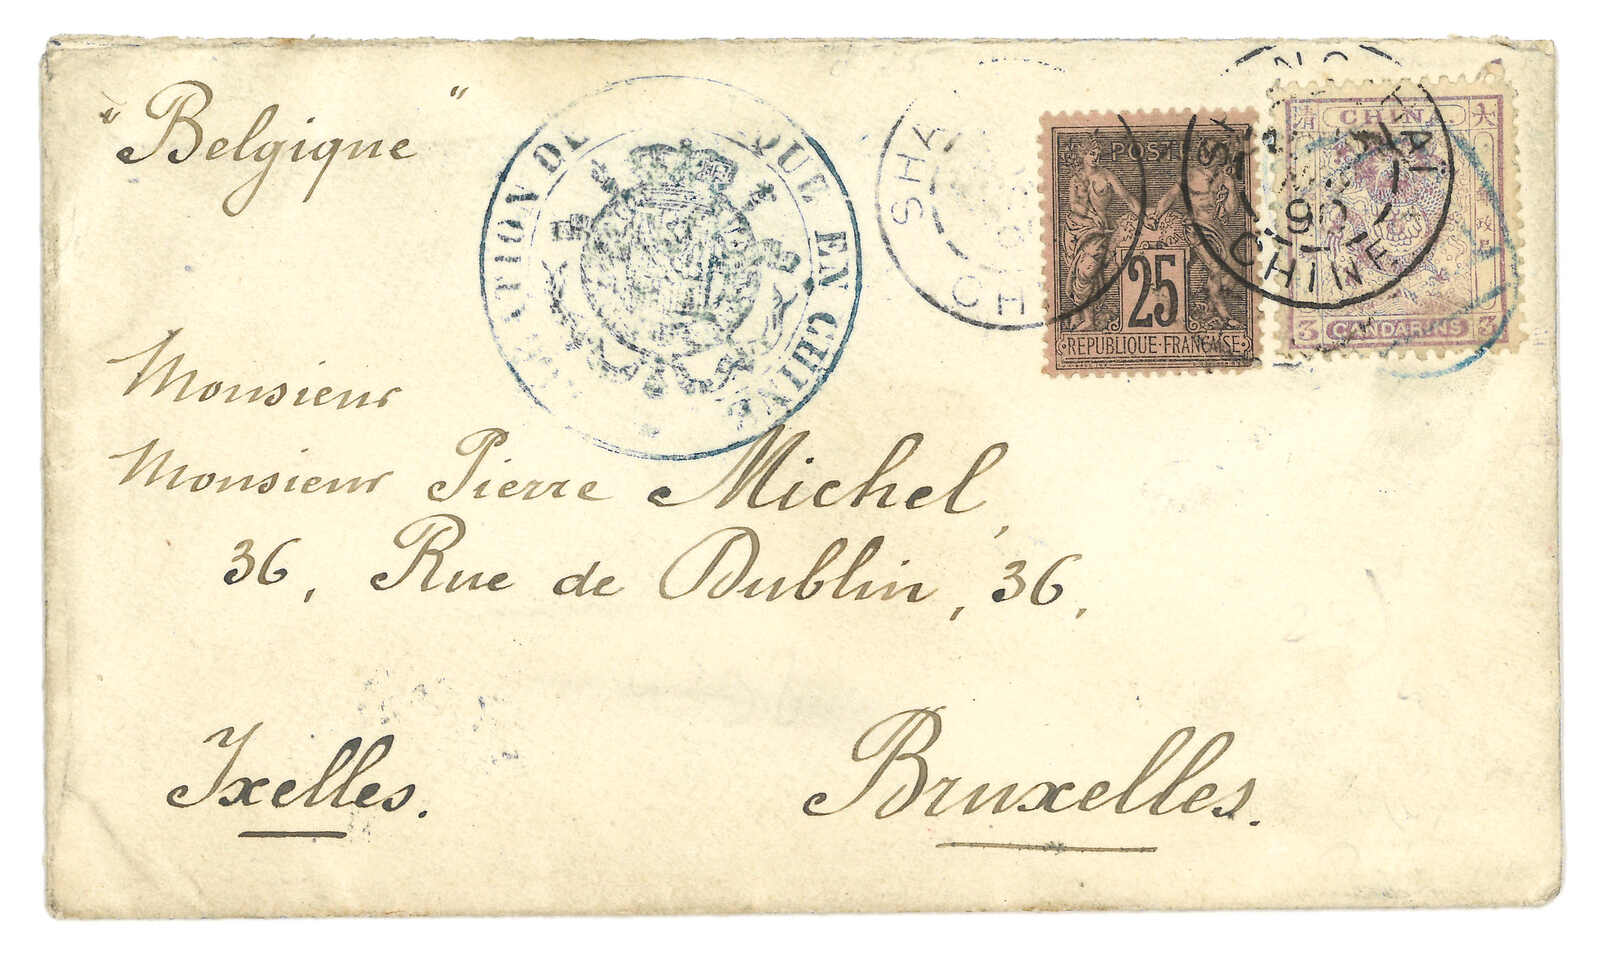 "Belgique"
EN CHINE
CHINE
POSTE
25
REPUBLIQUE FRANÇAISE
SHANG HAI
90
CHINE
清 CHINA. 大
3 CANDARINS 3
Monsieur
Monsieur Pierre Michel,
36, Rue de Dublin, 36,
Ixelles.
Bruxelles.